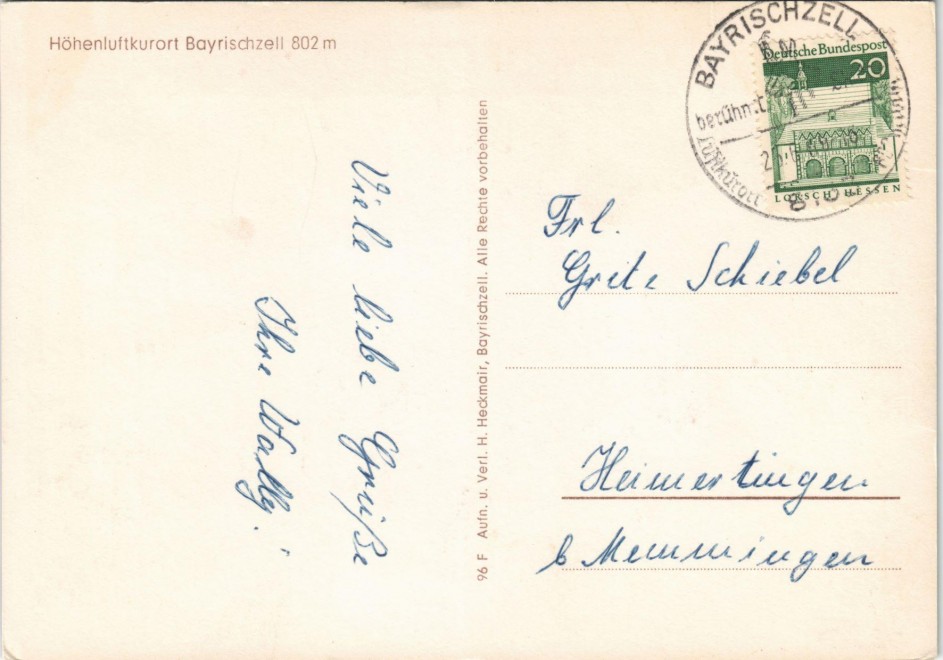 Höhenluftkurort Bayrischzell 802 m
BAYRISCHZELL
berühmt
Luftkurort
Deutsche Bundespost
20
LORSCH/HESSEN
Viele liebe Grüße
Ihre Wally!
96 F Aufn. u. Verl. H. Heckmair, Bayrischzell. Alle Rechte vorbehalten
Frl.
Grete Schiebel
Heimertingen
b Memmingen